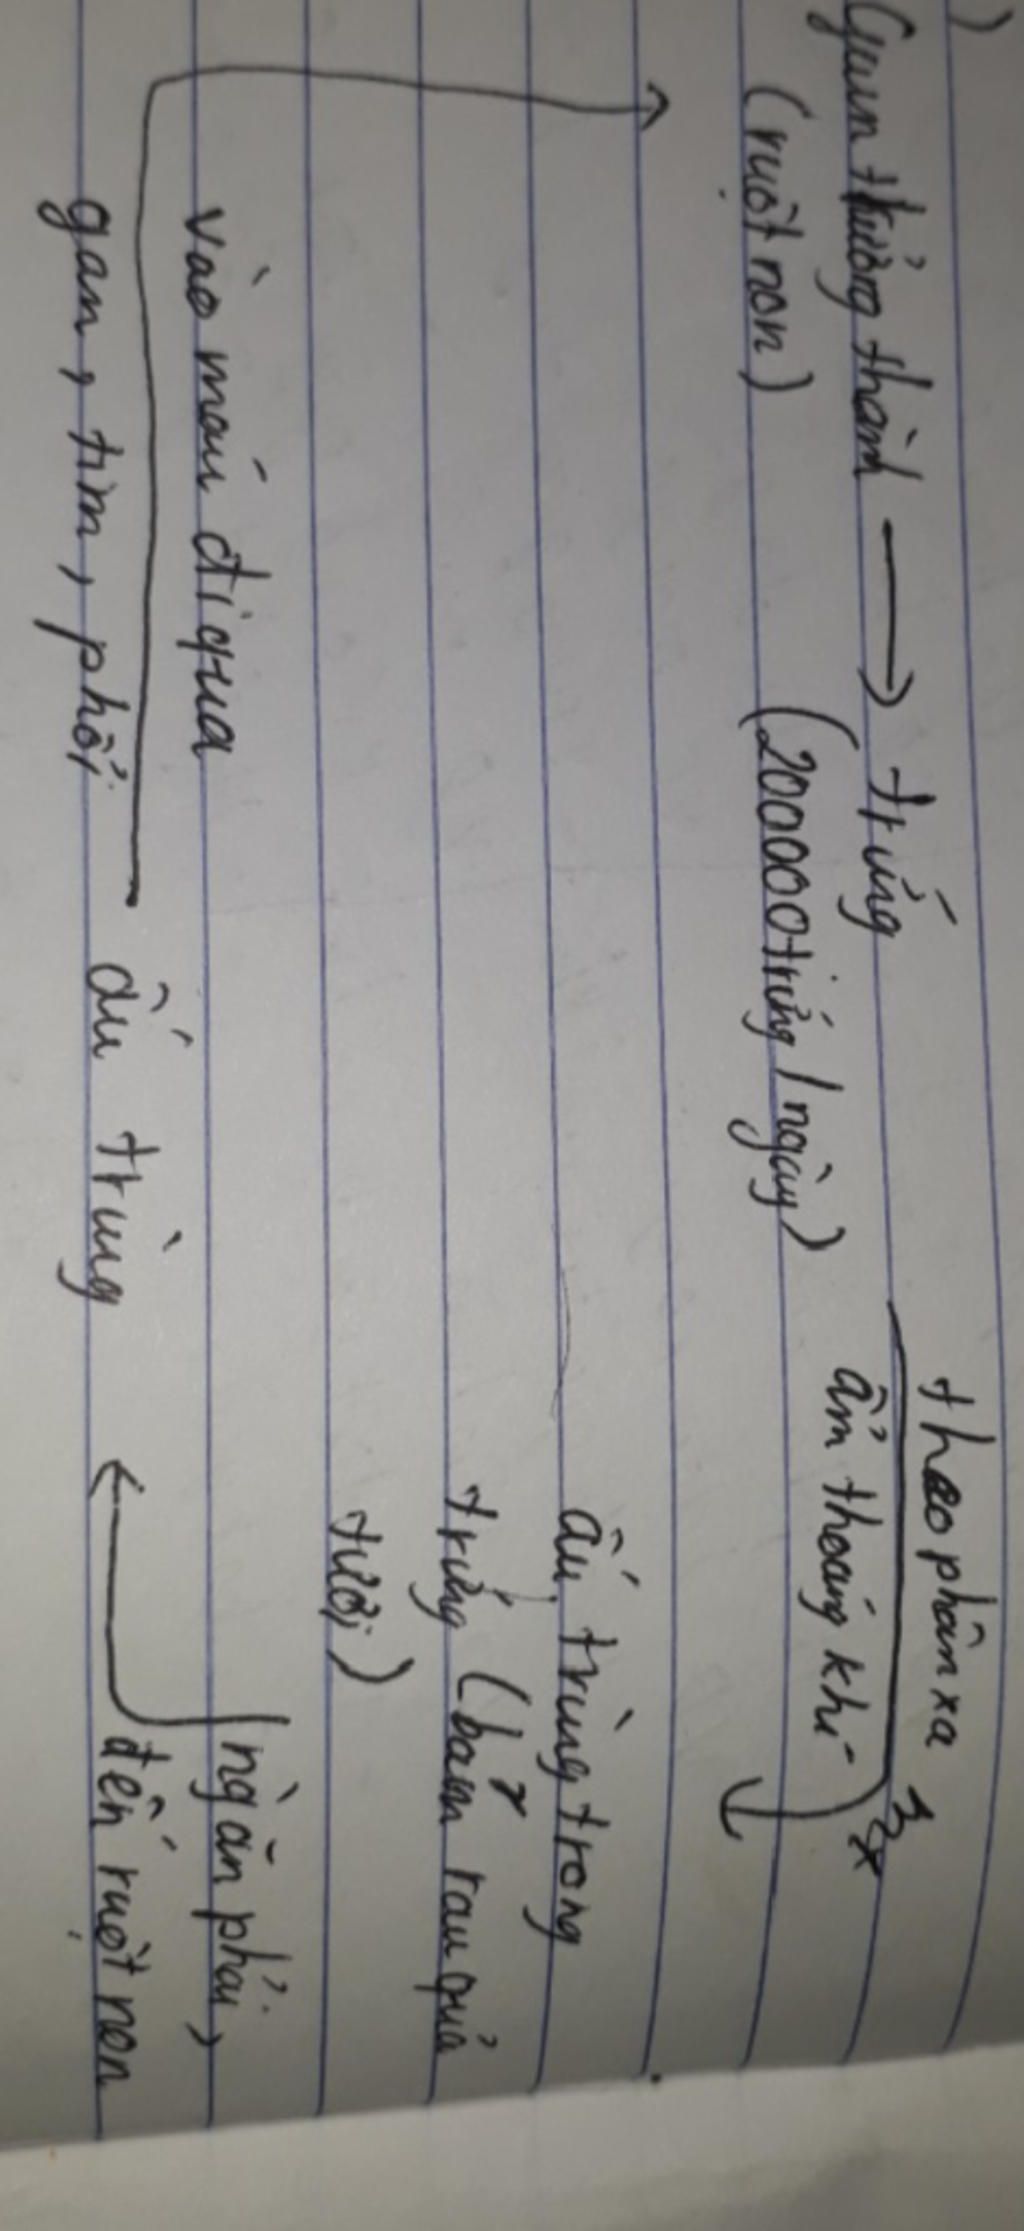 )
theo phân xa
Giun trưởng thành → trứng
ẩm thoáng khí
(ruột non)
(200000 trứng / ngày)
ấu trùng trong
trứng (bám rau quả
tươi)
vào máu đi qua
ngăn phải,
gan, tim, phổi
ấu trùng
đến ruột non